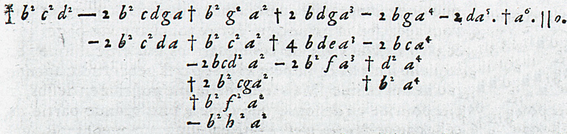 ‡ b² c² d² — 2 b² cdga † b² g² a² † 2 bdga³ – 2 bga⁴ – 2 da⁵. † a⁶. || 0.
– 2 b² c² da † b² c² a² † 4 bdea³ – 2 bca⁴
– 2bcd² a² – 2 b² fa³ † d² a⁴
† 2 b² cga² † b² a⁴
† b² f² a²
– b² h² a²